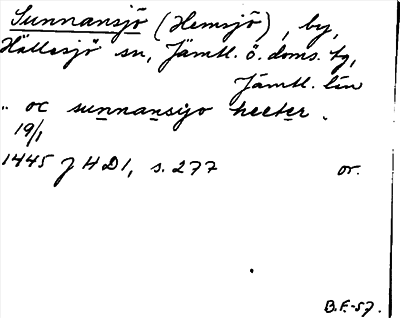 Sunnansjö (Hemsjö), by,
Hällesjö sn, Jämtl. ö. doms. tg,
Jämtl. län
.. oc sunnansyo heeter.
19/1
1445 JHD1, s. 277 or.
B.F.-57.